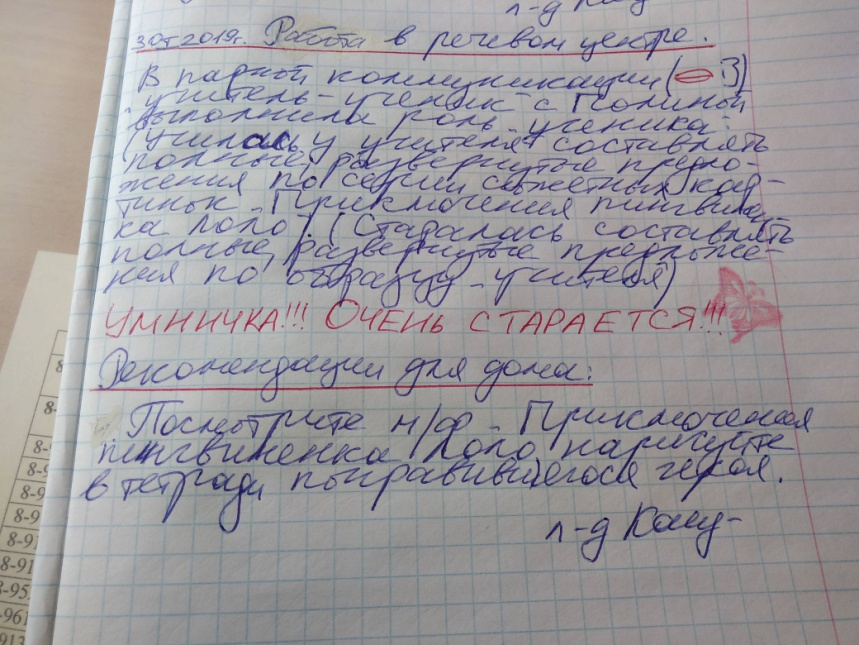 л-д
30т2019г. Работа в речевом центре.
В парной коммуникации (З)
учитель-ученик с Полиной
выполнила роль ученика:
(училась у учителя составлять
полные, развернутые предло-
жения по серии сюжетных кар-
тинок - Приключения пингвинен-
ка Лоло) (Старалась составлять
полные, развернутые предложе-
ния по образцу - учителя)
УМНИЧКА!!! ОЧЕНЬ СТАРАЕТСЯ!!!
Рекомендации для дома:
Посмотрите м/ф - Приключения
пингвиненка Лоло нарисуйте
в тетради понравившегося героя.
л-д
8-
8-
8-
8-9
8-9
8-9
8-91
8-91
8-95
-961
913